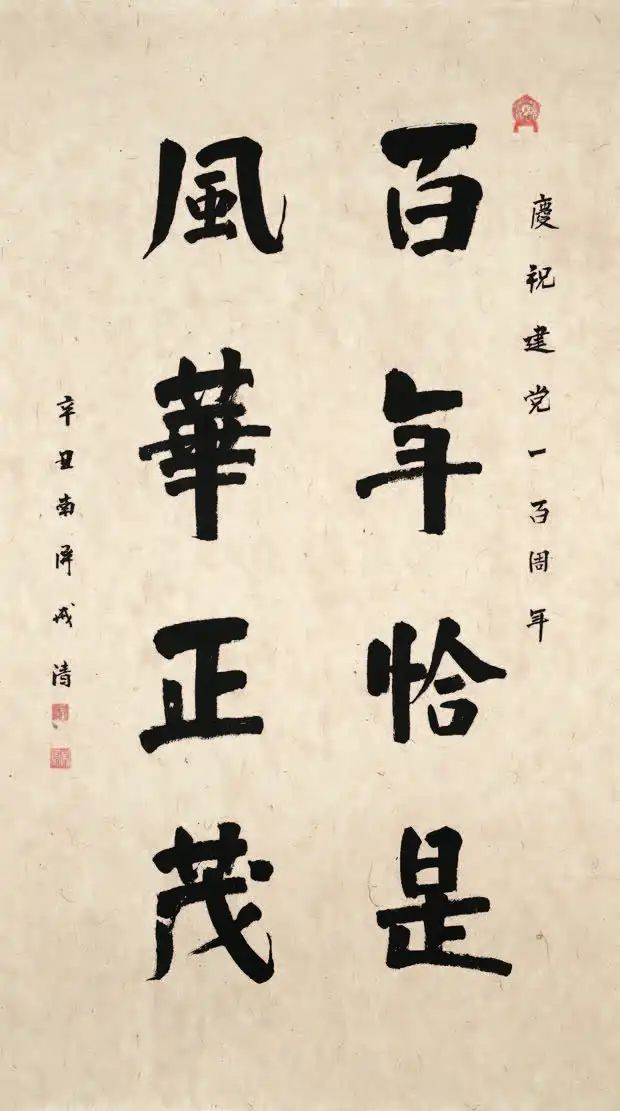 慶祝建党一百周年
百年恰是
風華正茂
辛丑南屏成清